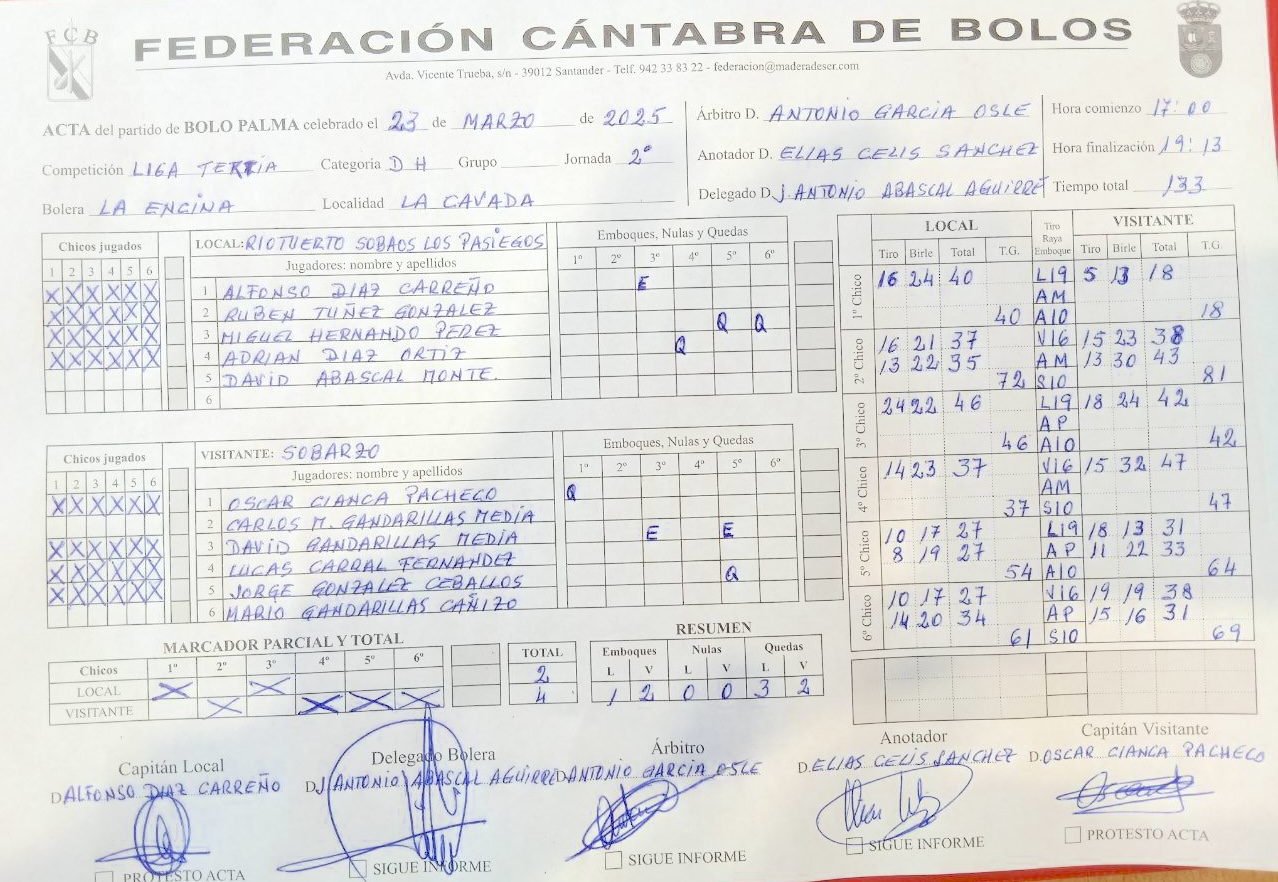 FCB
FEDERACIÓN CÁNTABRA DE BOLOS
Avda. Vicente Trueba, s/n - 39012 Santander - Telf. 942 33 83 22 - federacion@maderadeser.com
ACTA del partido de BOLO PALMA celebrado el 23 de MARZO de 2025
Competición LIGA TERRIA Categoría DH Grupo Jornada 2º
Bolera LA ENCINA Localidad LA CAVADA
Árbitro D. ANTONIO GARCIA OSLE
Anotador D. ELIAS CELIS SANCHEZ
Delegado D. J. ANTONIO ABASCAL AGUIRRE
Hora comienzo 17:00
Hora finalización 19:13
Tiempo total 133
Chicos jugados
1 2 3 4 5 6
X X X X X X
X X X X X X
X X X X X X
X X X X X X
LOCAL: RIOTUERTO SOBAOS LOS PASIEGOS
Jugadores: nombre y apellidos
1 ALFONSO DIAZ CARREÑO
2 RUBEN TUÑEZ GONZALEZ
3 MIGUEL HERNANDO PEREZ
4 ADRIAN DIAZ ORTIZ
5 DAVID ABASCAL MONTE.
6
Emboques, Nulas y Quedas
1º 2º 3º 4º 5º 6º
E
Q Q
Q
Chicos jugados
1 2 3 4 5 6
X X X X X X
X X X X X X
X X X X X X
X X X X X X
VISITANTE: SOBARZO
Jugadores: nombre y apellidos
1 OSCAR CIANCA PACHECO
2 CARLOS M. GANDARILLAS MEDIA
3 DAVID GANDARILLAS MEDIA
4 LUCAS CARRAL FERNANDEZ
5 JORGE GONZALEZ CEBALLOS
6 MARIO GANDARILLAS CAÑIZO
Emboques, Nulas y Quedas
1º 2º 3º 4º 5º 6º
Q
E E
Q
LOCAL Tiro Raya Emboque VISITANTE
Tiro Birle Total T.G. Tiro Birle Total T.G.
1º Chico 16 24 40 L19 5 13 18
AM
40 A10 18
2º Chico 16 21 37 V16 15 23 38
13 22 35 AM 13 30 43
72 S10 81
3º Chico 24 22 46 L19 18 24 42
AP
46 A10 42
4º Chico 14 23 37 V16 15 32 47
AM
37 S10 47
5º Chico 10 17 27 L19 18 13 31
8 19 27 AP 11 22 33
54 A10 64
6º Chico 10 17 27 V16 19 19 38
14 20 34 AP 15 16 31
61 S10 69
MARCADOR PARCIAL Y TOTAL
Chicos 1º 2º 3º 4º 5º 6º TOTAL
LOCAL X X 2
VISITANTE X X X X 4
RESUMEN
Emboques Nulas Quedas
L V L V L V
1 2 0 0 3 2
Capitán Local
D. ALFONSO DIAZ CARREÑO
PROTESTO ACTA
Delegado Bolera
D. J. ANTONIO ABASCAL AGUIRRE
SIGUE INFORME
Árbitro
D. ANTONIO GARCIA OSLE
SIGUE INFORME
Anotador
D. ELIAS CELIS SANCHEZ
SIGUE INFORME
Capitán Visitante
D. OSCAR CIANCA PACHECO
PROTESTO ACTA